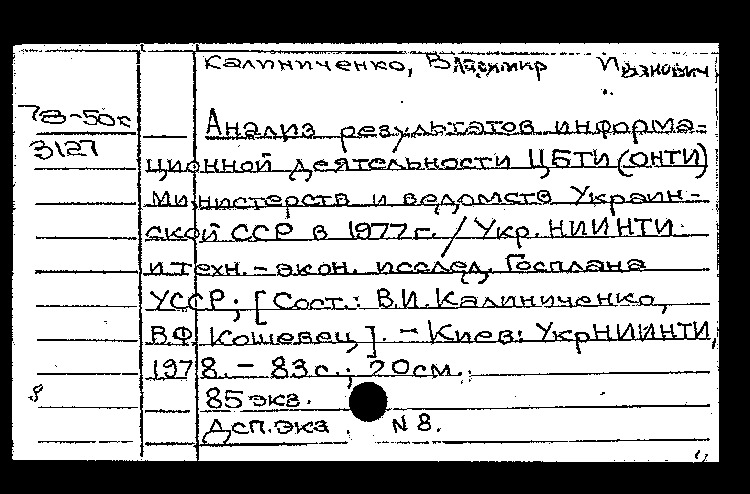 Калиниченко, Владимир Иванович
78-50к
Анализ результатов информа=
3127
ционной деятельности ЦБТИ (ОНТИ)
министерств и ведомств Украин-
ской ССР в 1977 г. / Укр. НИИНТИ
и техн.-экон. исслед. Госплана
УССР; [Сост.: В.И. Калиниченко,
В.Ф. Кошевец]. - Киев: УкрНИИНТИ,
1978. - 83 с.; 20 см.
8
85 экз.
Дсп. экз. N 8.